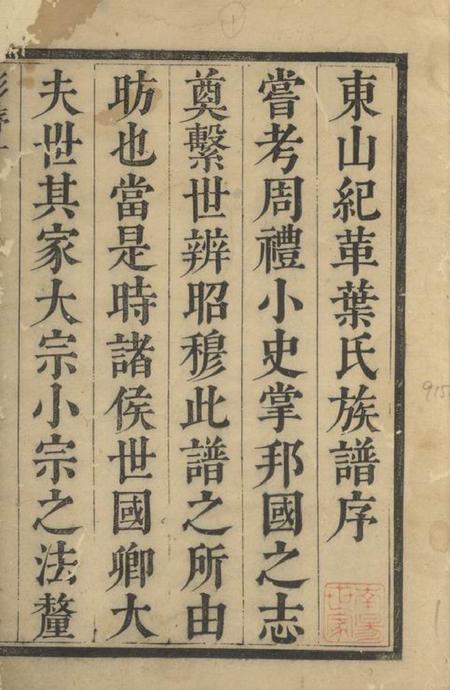 東山紀革葉氏族譜序
嘗考周禮小史掌邦國之志
奠繫世辨昭穆此譜之所由
昉也當是時諸侯世國卿大
夫世其家大宗小宗之法釐